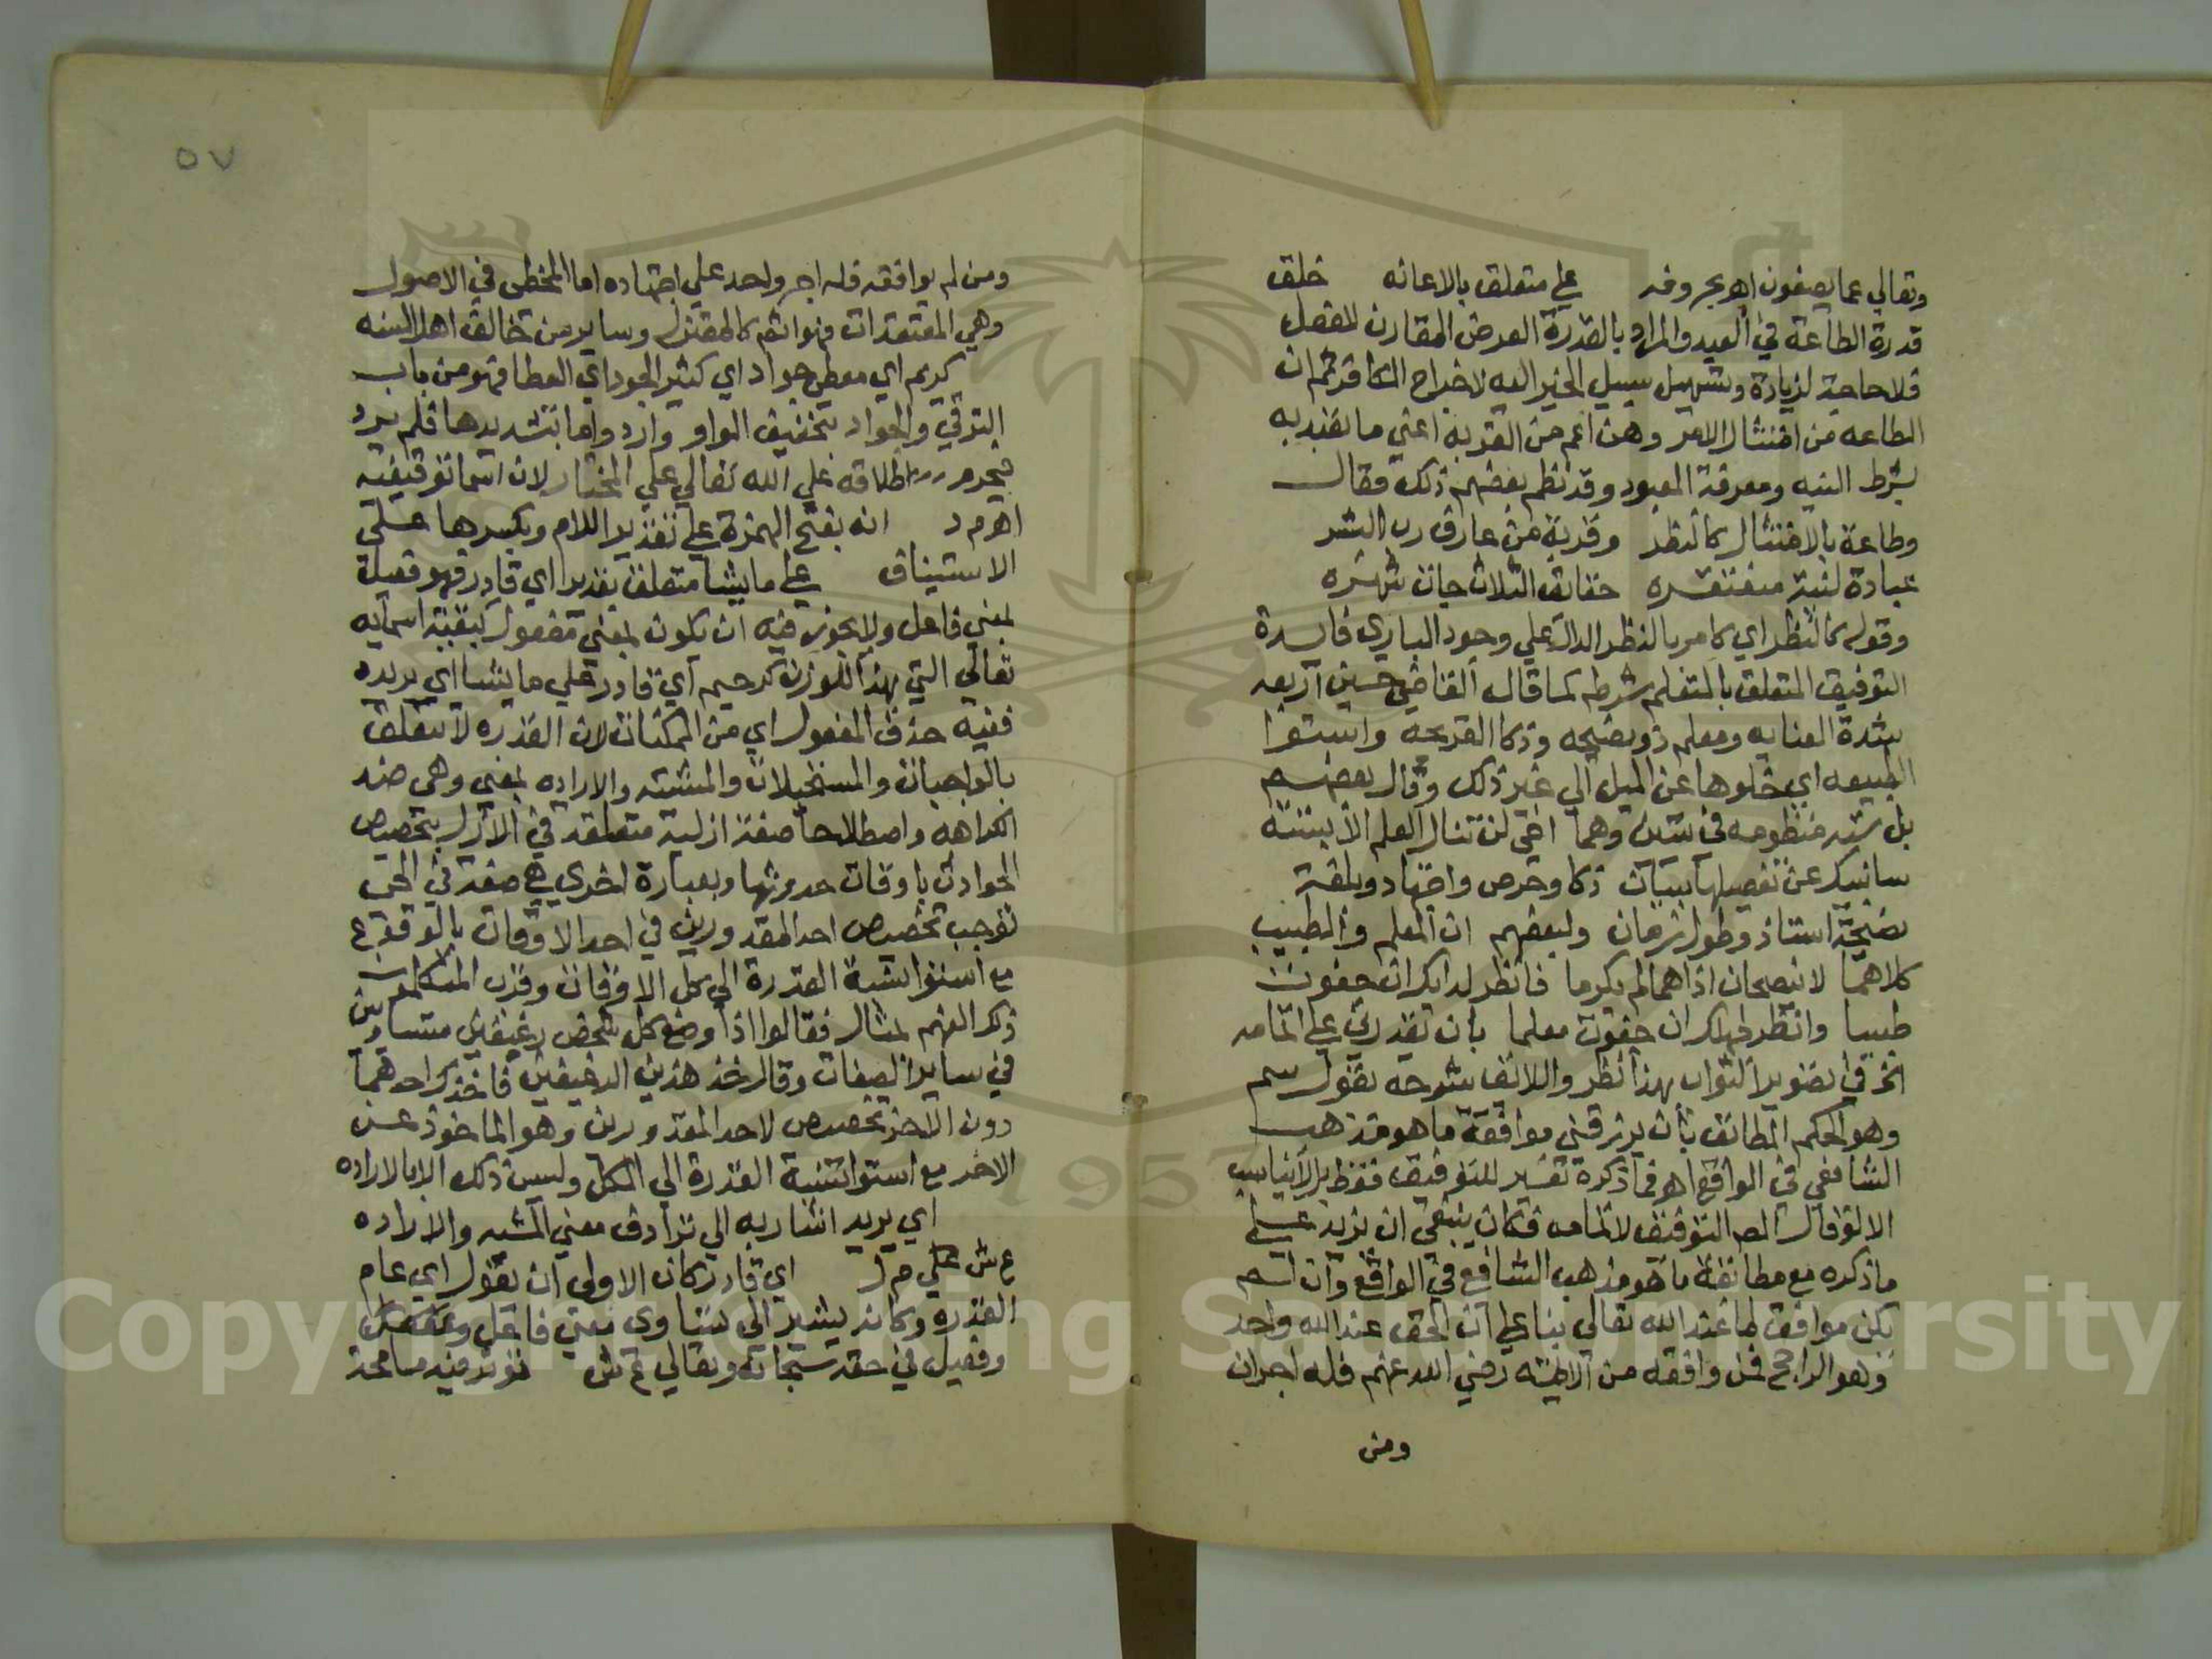 وتعالي عما يصفون اهو بحروفه علي متعلق بالاعانه خلق
قدرة الطاعة في العبد والمراد بالقدرة العرض المقارن للفعل
فلا حاجة لزيادة وتسهيل سبيل الخير اليه لاخراج الكافر ثم ان
الطاعه من امتثال الامر وهي اعم من القربه اعني ما تقرب به
بشرط النيه ومعرفة المعبود وقد نظم بعضهم ذلك فقال
وطاعة بالامتثال كالنظر وقربة من عارف رب البشر
عبادة لنية مفتقره حقائق الثلاث جات شهره
وقوله كالنظر اي كامر بالنظر الدال علي وجود الباري فايدة
التوفيق المتعلق بالتعلم شرطه كما قال القاضي حسين اربعه
شدة العنايه ومعلم ذو نصيحه وذكا القريحه واستوا
الطبيعه اي خلوها عن الميل الي غير ذلك وقال بعضهم
بل سته منظومه في بيتين وهما اخي لن تنال العلم الا بستة
سانبيك عن تفصيلها ببيان ذكا وحرص واجتهاد وبلغة
نصيحة استاذ وطول زمان ولبعضهم ان المعلم والطبيب
كلاهما لا ينصحان اذا هما لم يكرما فانظر لدايك ان جفوت
طبيبا وانظر لجهلك ان جفوت معلما بان تقدرني علي اتمامه
الخ في تصوير الثواب بهذا نظر واللائق بشرحه بقول سم
وهو الحكم المطابق بان يرزقني موافقة ما هو مذهب
الشافعي في الواقع اهو فما ذكره تفسير للتوفيق فقط بل لا يناسب
الا لو قال المص التوفيق لاتمامه فكان ينبغي ان يزيد علي
ما ذكره مع مطابقة ما هو مذهب الشافعي في الواقع وان لم
يكن موافق لما عند الله تعالي بنا علي ان الحق عند الله واحد
وهو الراجح فمن وافقه من الايمه رضي الله عنهم فله اجران
ومن
٥٧
ومن لم يوافقه فله اجر واحد علي اجتهاده اما المخطي في الاصول
وهي المعتقدات فهو اثم كالمعتزل وساير من خالف اهل السنه
كريم اي معطي جواد اي كثير الجود اي العطا فهو من باب
الترقي والجواد بتخفيف الواو وارد واما بتشديدها فلم يرد
فيحرم اطلاقه علي الله تعالي علي المختار لان اسما توقيفيه
اهو م د انه بفتح الهمزة علي تقدير اللام وبكسرها علي
الاستيناف علي ما يشا متعلق بقدير اي قادر فهو فعيل
بمعني فاعل ولا يجوز فيه ان يكون بمعني مفعول كبقية اسمايه
تعالي التي بهذا الوزن كرحيم اي قادر علي ما يشا اي يريده
ففيه حذف المفعول اي من الممكنات لان القدره لا تتعلق
بالواجبات والمستحيلات والمشيه والاراده بمعني وهي ضد
الكراهه واصطلاحا صفة ازلية متعلقه في الازل بتخصيص
الحوادث باوقات حدوثها وبعبارة اخري هي صفة في الحي
توجب تخصيص احد المقدورين في احد الاوقات بالوقوع
مع استوا نسبة القدرة الي كل الاوقات وقرب المتكلمون
ذكر الفهم لمثال فقالوا اذا وضع كل شخص رغيفين متساويين
في ساير الصفات وقال خذ هذين الرغيفين فاخذك احدهما
دون الاخر تخصيص لاحد المقدورين وهو الماخوذ عن
الاخر مع استوا نسبة القدرة الي الكل وليس ذلك الا بالاراده
اي يريد اشار به الي ترادف معني المشيه والاراده
ع ش علي م ر اي قادر كان الاولي ان يقول اي عام
القدره وكانه يشير الي تساوي معني فاعل
وفعيل في حقه سبحانه وتعالي ع ش فيه مسامحة